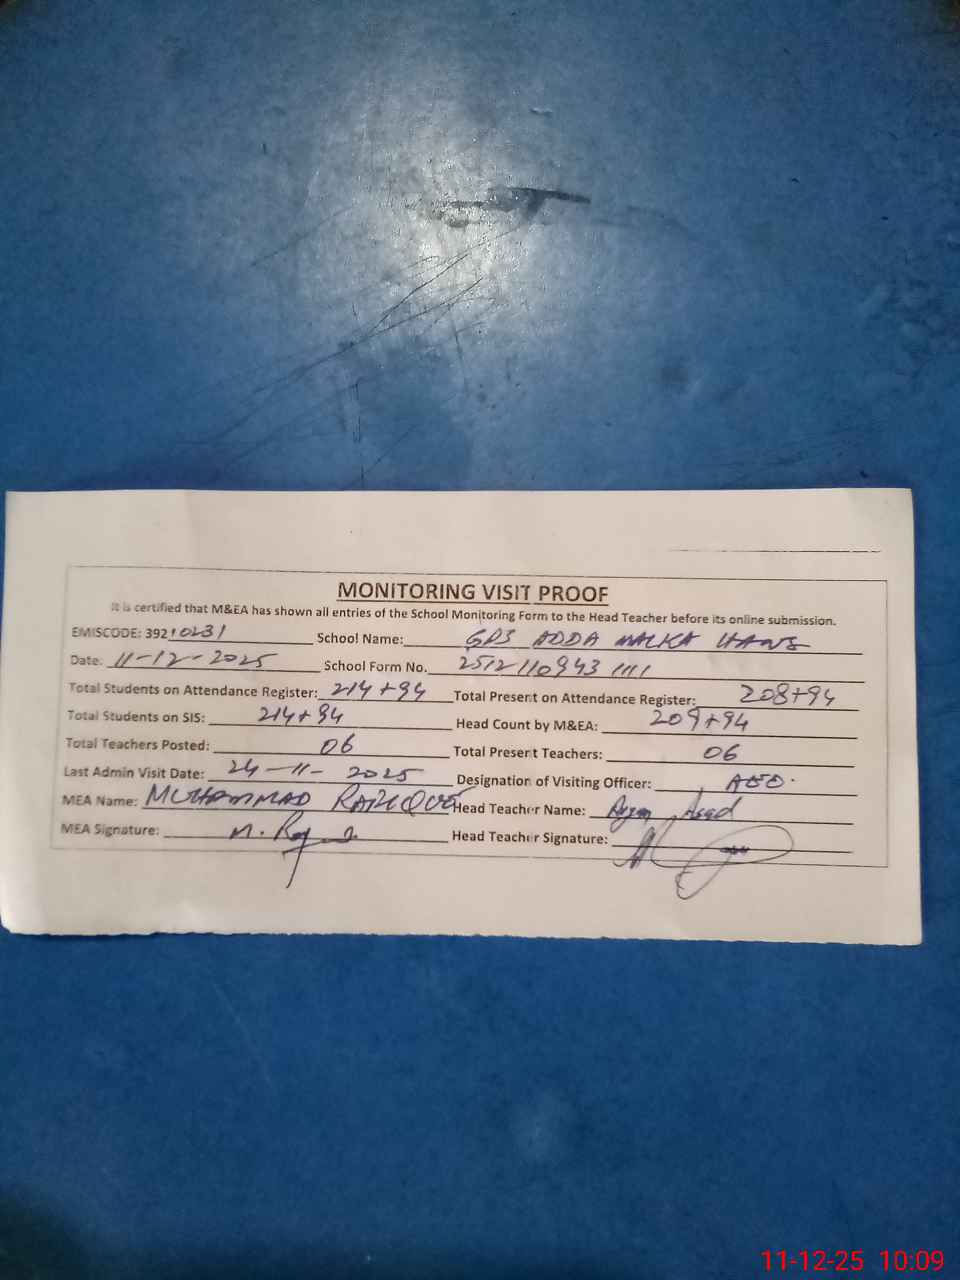 MONITORING VISIT PROOF
It is certified that M&EA has shown all entries of the School Monitoring Form to the Head Teacher before its online submission.
EMISCODE: 39210231 School Name: GPS ADDA MALKA HANS
Date: 11-12-2025 School Form No. 2512110943 1111
Total Students on Attendance Register: 214+94 Total Present on Attendance Register: 208+94
Total Students on SIS: 214+94 Head Count by M&EA: 209+94
Total Teachers Posted: 06 Total Present Teachers: 06
Last Admin Visit Date: 24-11-2025 Designation of Visiting Officer: AEO.
MEA Name: MUHAMMAD Head Teacher Name: Asad
MEA Signature: Head Teacher Signature:
11-12-25 10:09